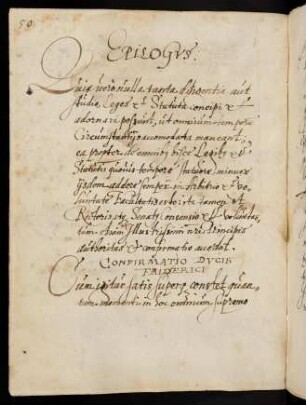 50
EPILOGVS.
Quia vero nulla tanta diligentia aut
studio Leges et Statuta concipi et
adornari possunt, ut omnium tempore
Circumstantijs accomodata maneant,
ea propter de omnibus hisce Legibus et
Statutis quouis tempore statuere, minuere
ijsdem addere semper in arbitrio et vo,,
luntate Facultatis esto: ita tamen ut
Rectoris et Senatus consensus et voluntas,
tum etiam Illustrissimi nri Principis
authoritas et confirmatio accedat.
CONFIRMATIO DVCIS
FRIDERICI
Cum igitur satis superq. constet, quan,,
tum momentum in hoc omnium supremo